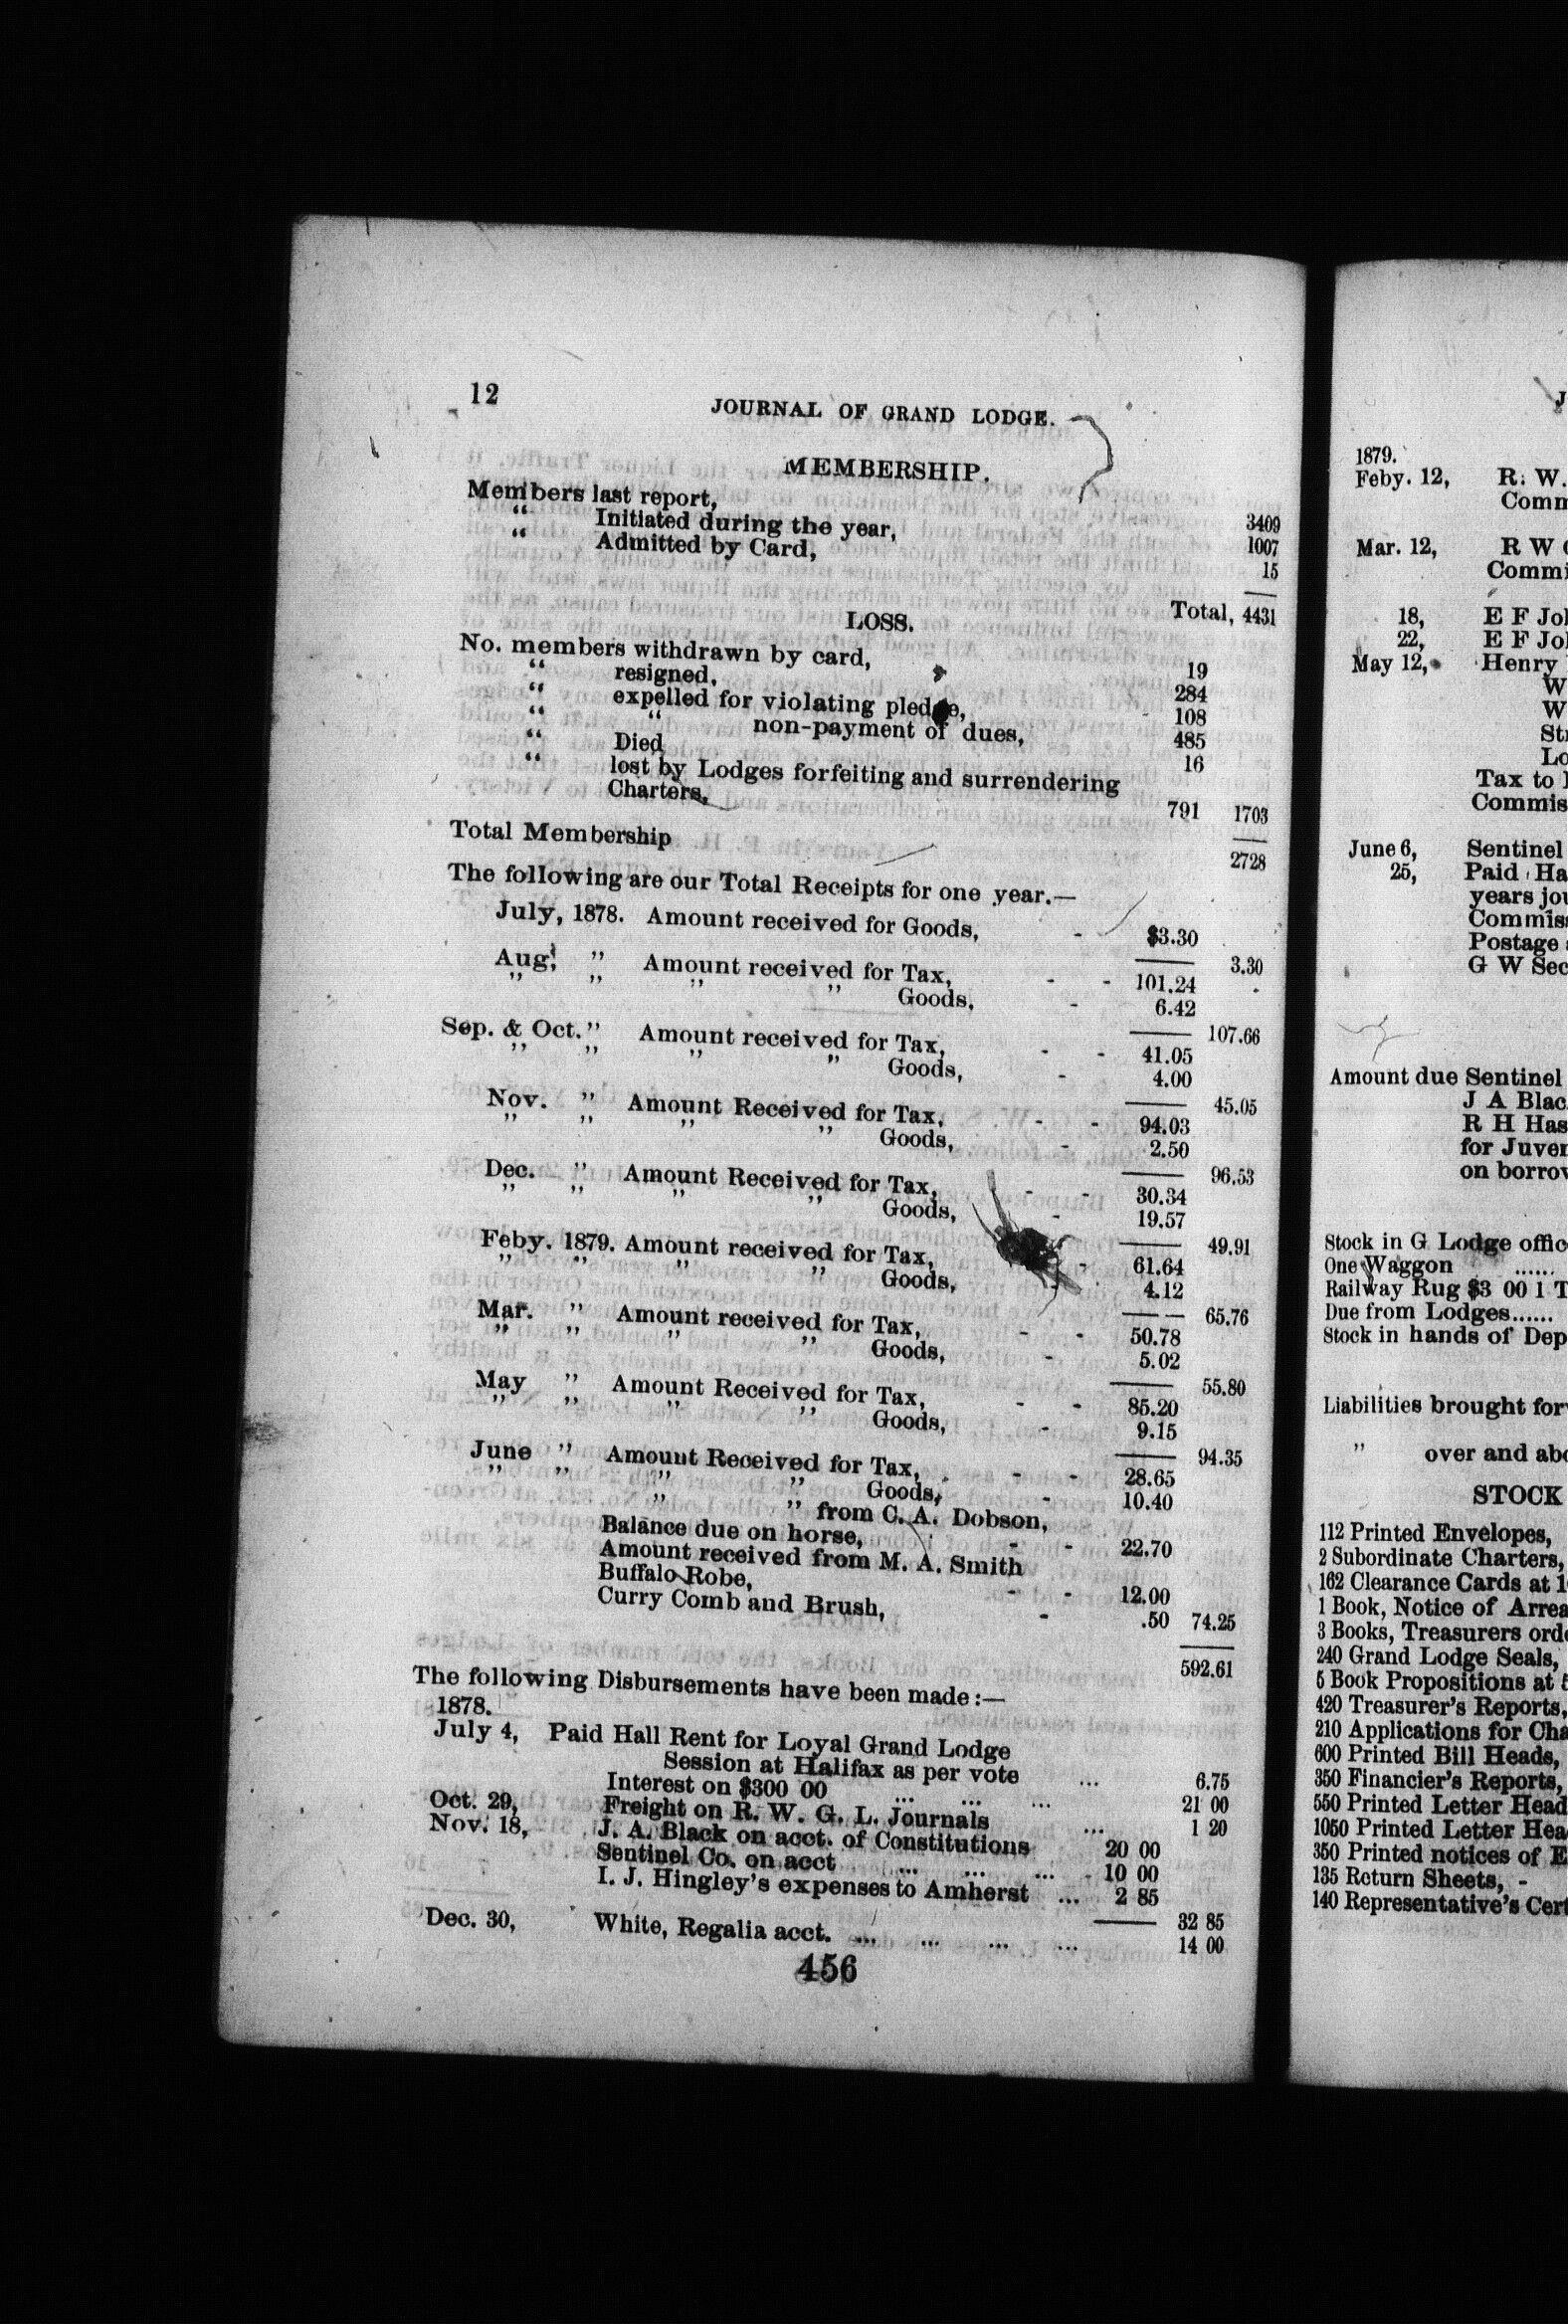 12
JOURNAL OF GRAND LODGE.
MEMBERSHIP.
Members last report, 3409
“ Initiated during the year, 1007
“ Admitted by Card, 15
Total, 4431
LOSS.
No. members withdrawn by card, 19
“ resigned, 284
“ expelled for violating pledge, 108
“ “ non-payment of dues, 485
“ Died 16
“ lost by Lodges forfeiting and surrendering
Charters, 791 1703
Total Membership 2728
The following are our Total Receipts for one year.—
July, 1878. Amount received for Goods, - $3.30
3.30
Aug. ” Amount received for Tax, - - 101.24
” ” ” ” Goods, - 6.42
107.66
Sep. & Oct. ” Amount received for Tax, - - 41.05
” ” ” ” Goods, - 4.00
45.05
Nov. ” Amount Received for Tax, - - 94.03
” ” ” ” Goods, - 2.50
96.53
Dec. ” Amount Received for Tax, - - 30.34
” ” ” ” Goods, - 19.57
49.91
Feby. 1879. Amount received for Tax, - 61.64
” ” ” ” Goods, 4.12
65.76
Mar. ” Amount received for Tax, - - 50.78
” ” ” ” Goods, - 5.02
55.80
May ” Amount Received for Tax, - - 85.20
” ” ” ” Goods, - 9.15
94.35
June ” Amount Received for Tax, - - 28.65
” ” ” ” Goods, - 10.40
” ” from C. A. Dobson,
Balance due on horse, - - 22.70
Amount received from M. A. Smith
Buffalo Robe, - - 12.00
Curry Comb and Brush, - .50 74.25
592.61
The following Disbursements have been made :—
1878.
July 4, Paid Hall Rent for Loyal Grand Lodge
Session at Halifax as per vote ... 6.75
Interest on $300 00 ... ... ... 21 00
Oct. 29, Freight on R. W. G. L. Journals ... 1 20
Nov. 18, J. A. Black on acct. of Constitutions 20 00
Sentinel Co. on acct ... ... ... 10 00
I. J. Hingley’s expenses to Amherst ... 2 85
32 85
Dec. 30, White, Regalia acct. ... ... ... ... 14 00
456
1879.
Feby. 12, R. W.
Mar. 12, R W
18, E F
22, E F
May 12, Henry
W
W
Tax to
June 6, Sentinel
25, Paid
years
Postage
G W
Amount due Sentinel
J A
R H
for
on
Stock in G. Lodge
One Waggon ......
Railway Rug $3 00 1
Due from Lodges......
Stock in hands of
Liabilities brought
” over and
STOCK
112 Printed Envelopes,
2 Subordinate Charters,
162 Clearance Cards at
1 Book, Notice of
3 Books, Treasurers
240 Grand Lodge Seals,
5 Book Propositions at
420 Treasurer’s Reports,
210 Applications for
600 Printed Bill Heads,
350 Financier’s Reports,
550 Printed Letter
1050 Printed Letter
350 Printed notices of
135 Return Sheets, -
140 Representative’s